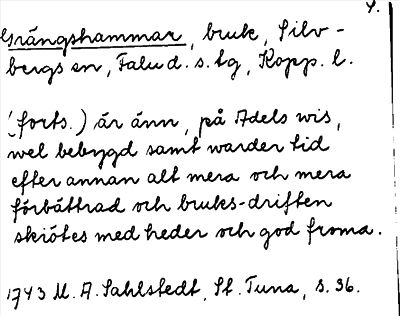 4.
Grängshammar, bruk, Silv-
bergs sn, Falu d. s. lg, Kopp. l.
(forts.) är änn, på Adels wis,
wel bebygd samt warder tid
efter annan alt mera och mera
förbättrad och bruks-driften
skiötes med heder och god froma.
1743 M. A. Sahlstedt, St. Tuna, s. 36.